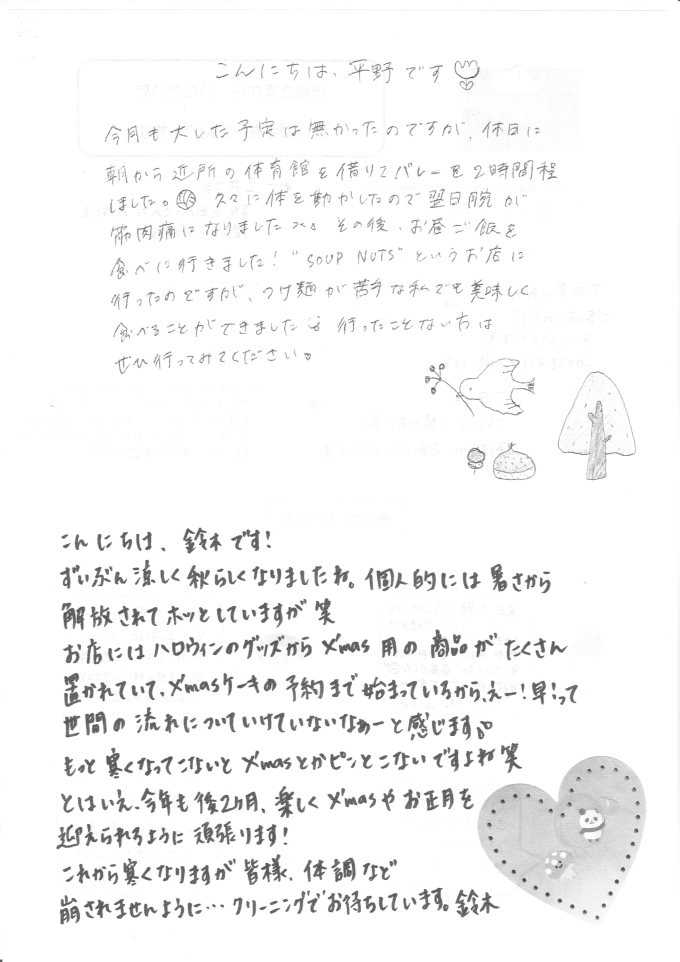 こんにちは、平野です
今月も大した予定は無かったのですが、休日に
朝から近所の体育館を借りてバレーを2時間程
しました。久々に体を動かしたので翌日腕が
筋肉痛になりました。その後、お昼ご飯を
食べに行きました！"SOUP NUTS"というお店に
行ったのですが、つけ麺が苦手な私でも美味しく
食べることができました 行ったことない方は
ぜひ行ってみてください。
こんにちは、鈴木です！
ずいぶん涼しく秋らしくなりましたね。個人的には暑さから
解放されてホッとしていますが笑
お店にはハロウィンのグッズからX'mas用の商品がたくさん
置かれていて、X'masケーキの予約まで始まっているから、えー！早！って
世間の流れについていけていないなぁーと感じます。
もっと寒くなってこないとX'masとかピンとこないですよね笑
とはいえ、今年も後2ヶ月、楽しくX'masやお正月を
迎えられるように頑張ります！
これから寒くなりますが皆様、体調など
崩されませんように…クリーニングでお待ちしています。鈴木